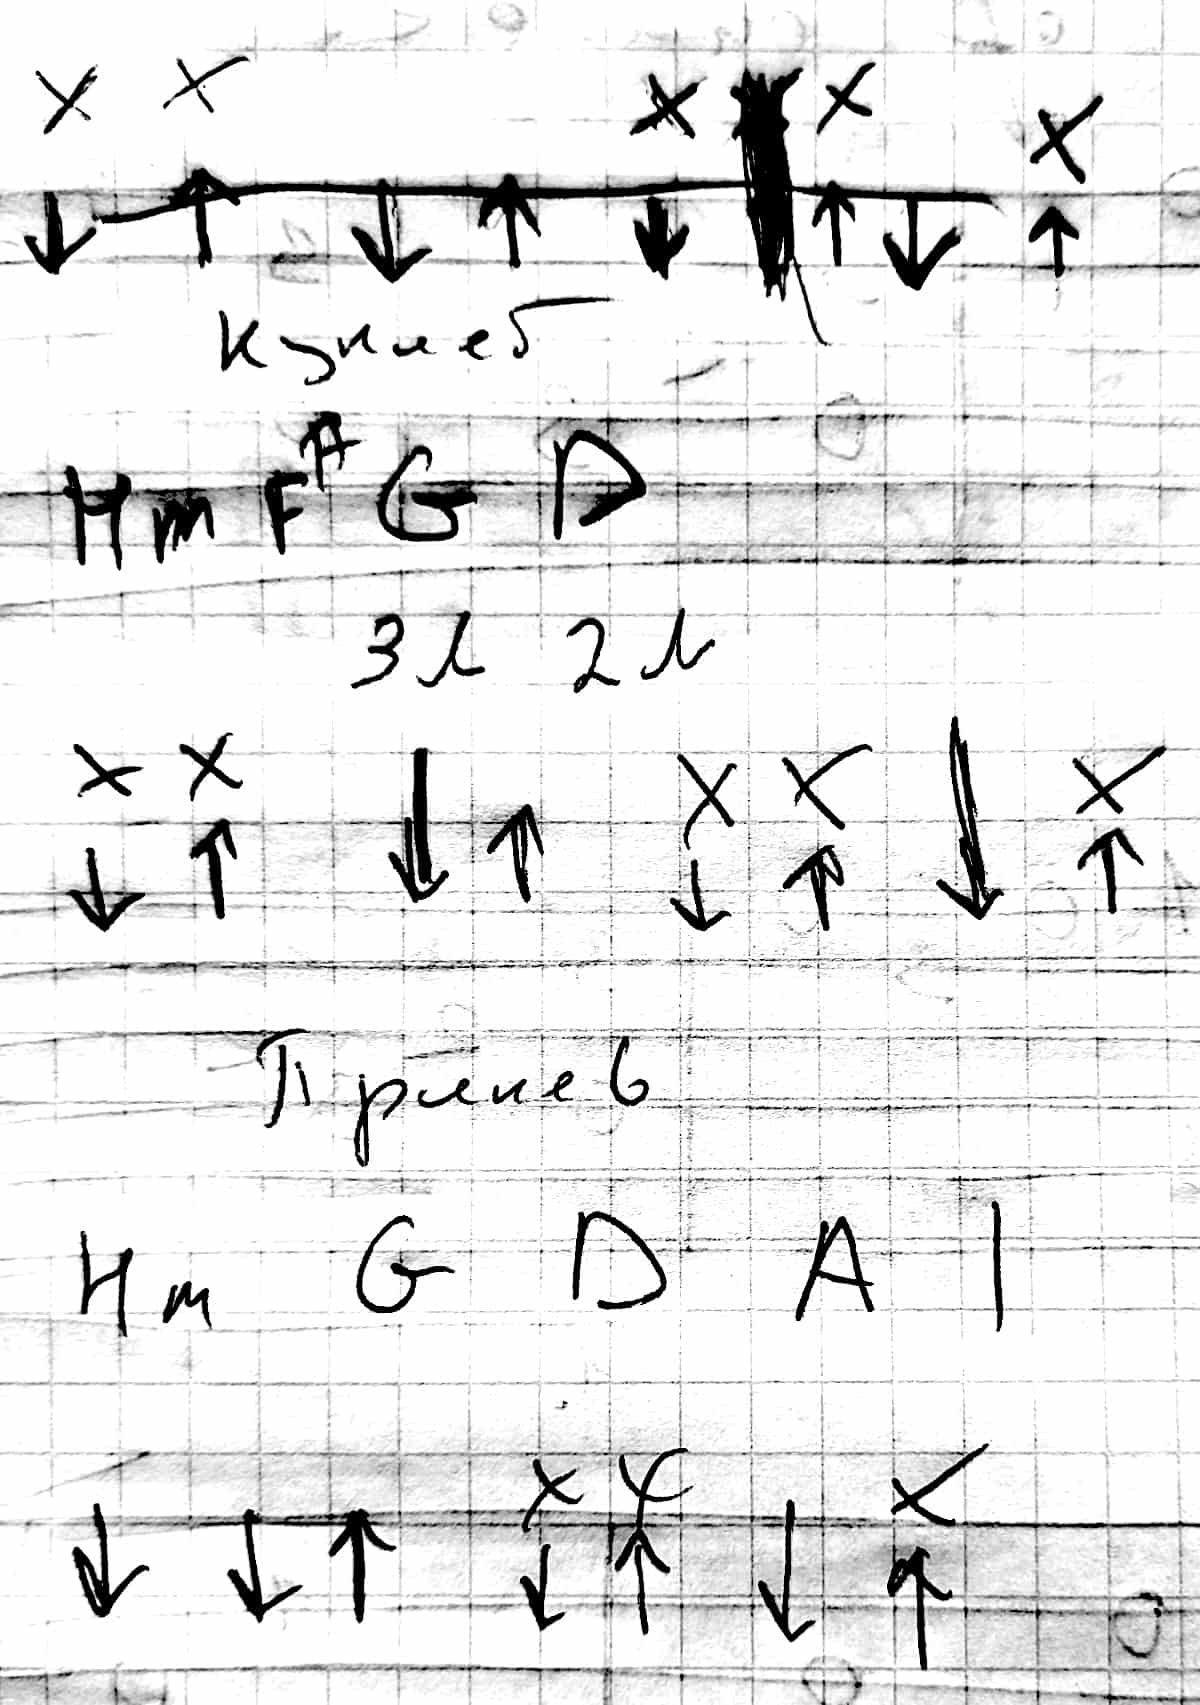 X X X X X
↓ ↑ ↓ ↑ ↓ ↑ ↓ ↑
Куплет
Hm F A G D
3л 2л
X X X X X
↓ ↑ ↓ ↑ ↓ ↑ ↓ ↑
Припев
Hm G D A |
X X X
↓ ↓ ↑ ↓ ↑ ↓ ↑